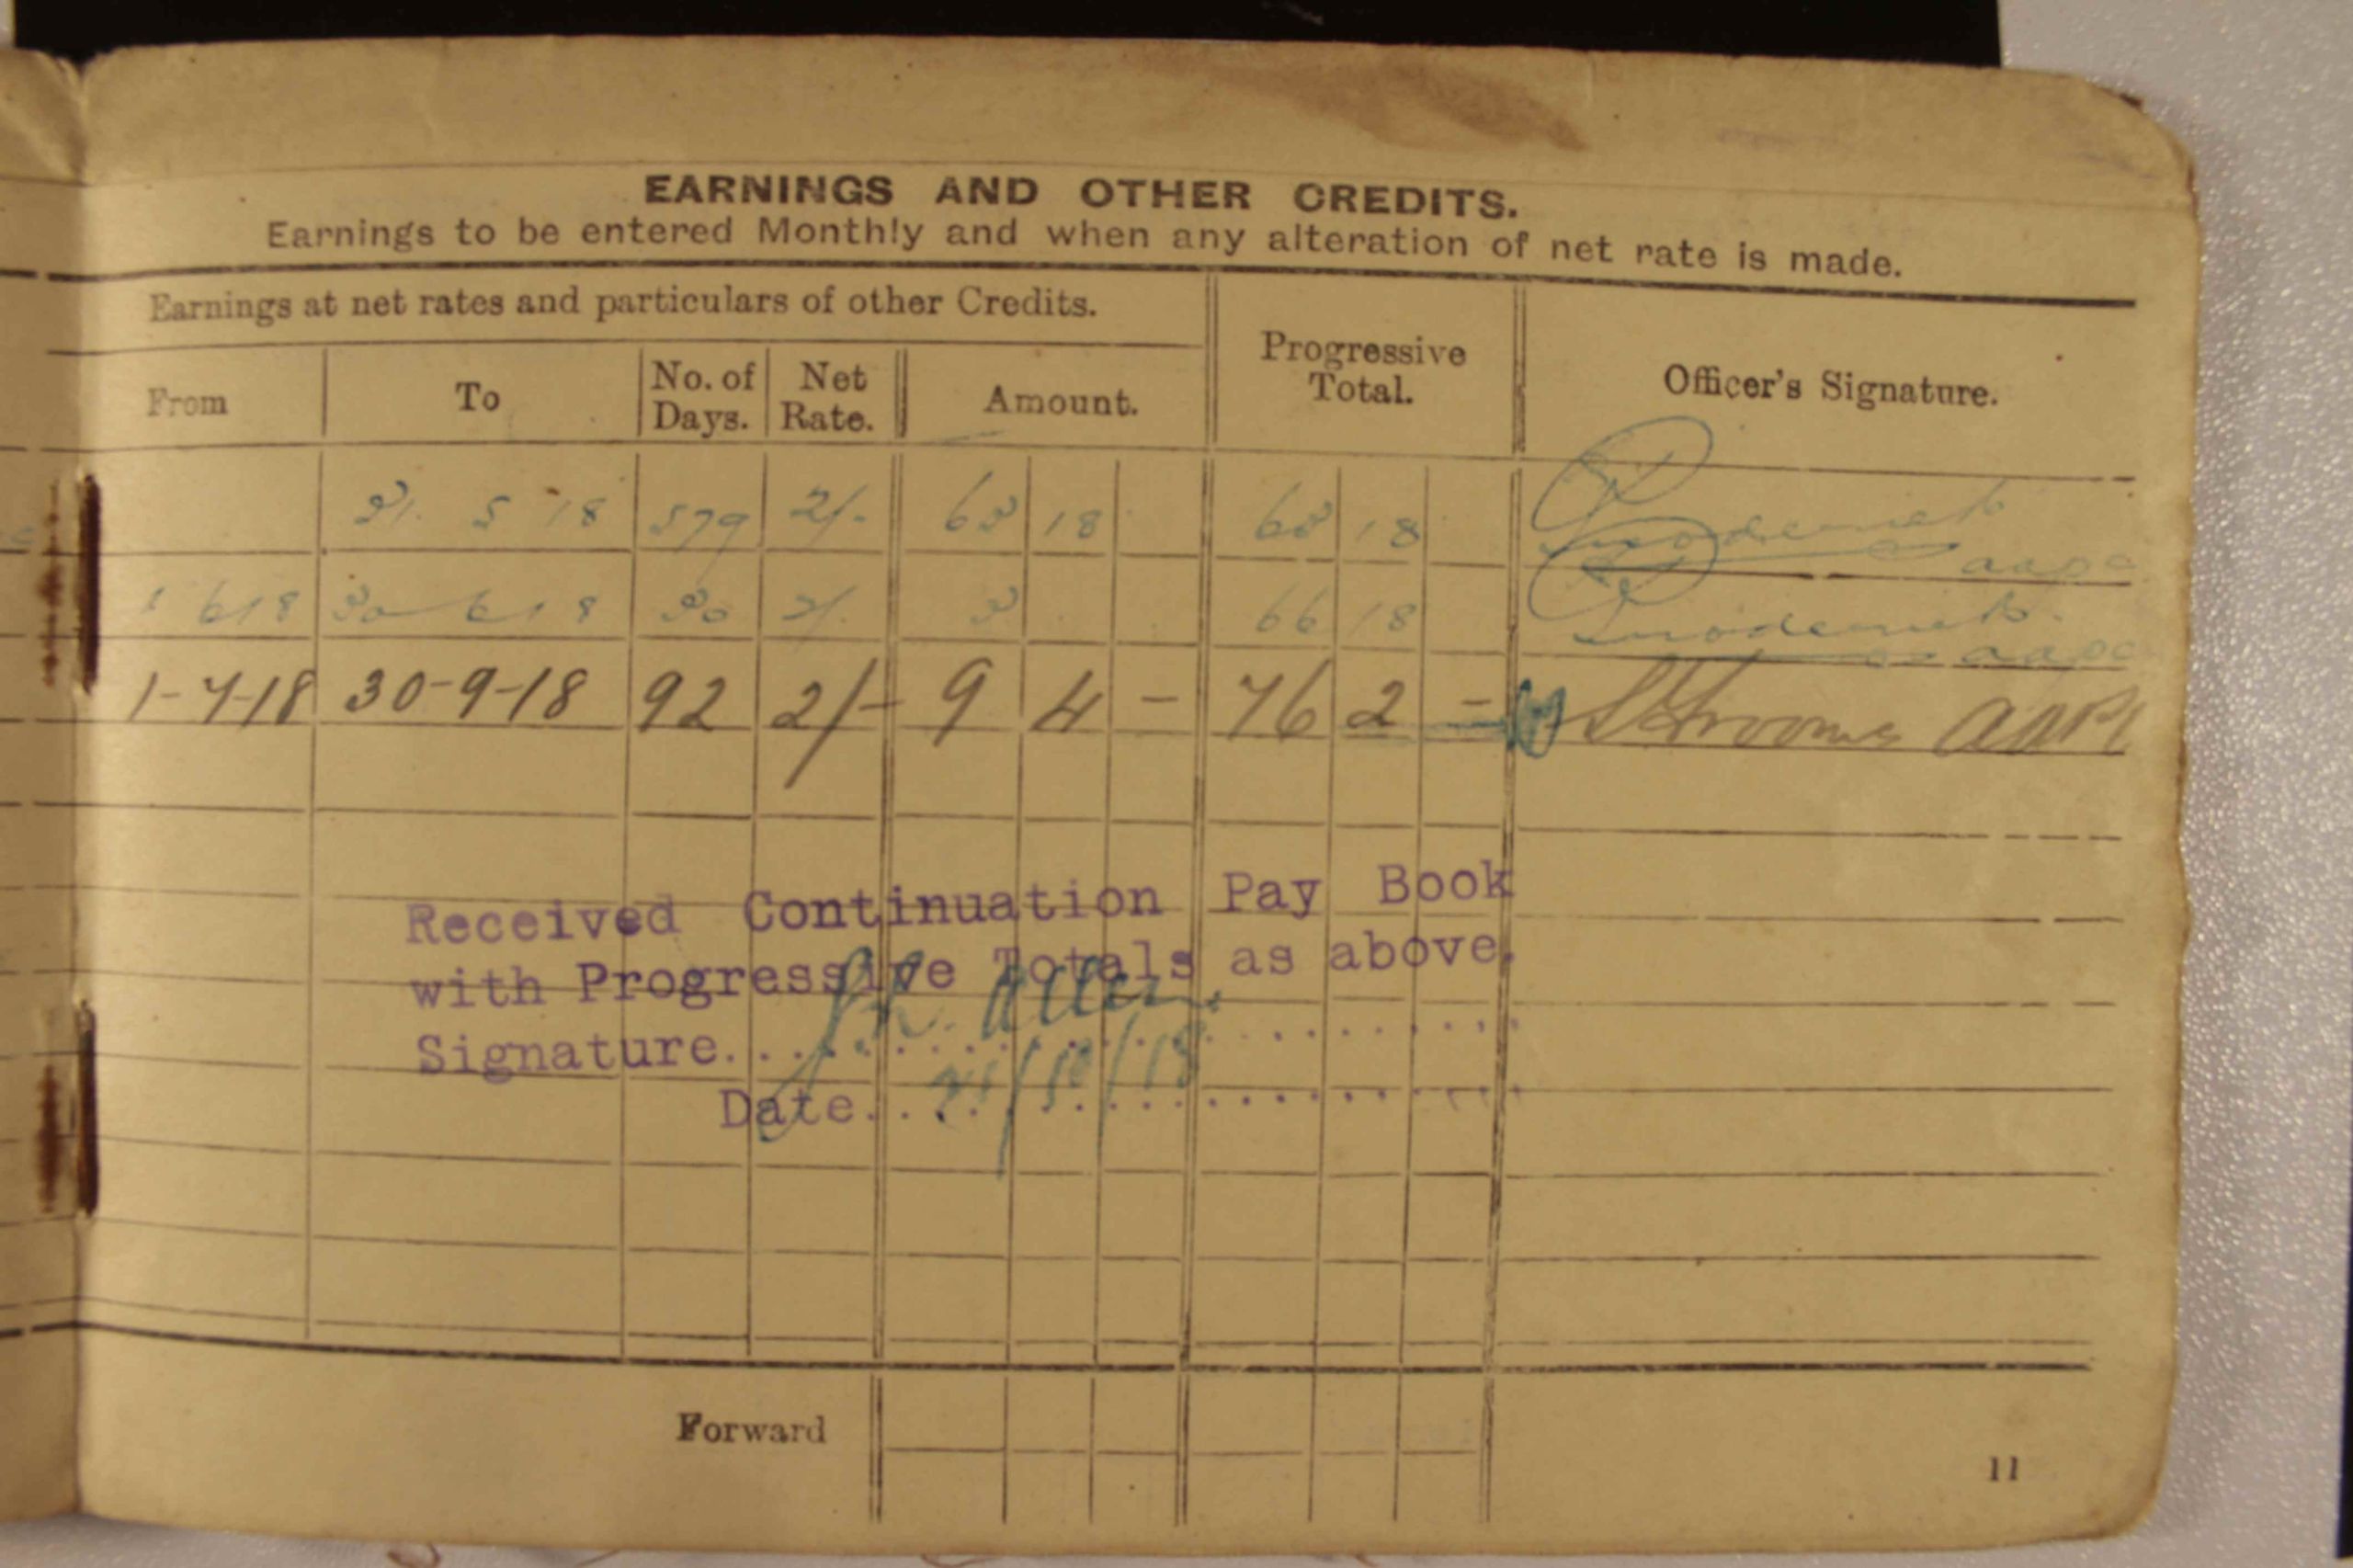 EARNINGS AND OTHER CREDITS.
Earnings to be entered Monthly and when any alteration of net rate is made.
Earnings at net rates and particulars of other Credits.
Progressive Total.
Officer's Signature.
From To No. of Days. Net Rate. Amount.
31 5 18 579 2/- 63 18 63 18
1 6 18 30 6 18 30 2/- 3 66 18
1-7-18 30-9-18 92 2/- 9 4 - 76 2 -
Received Continuation Pay Book
with Progressive Totals as above.
Signature.......... Allen
Date..........
Forward
11